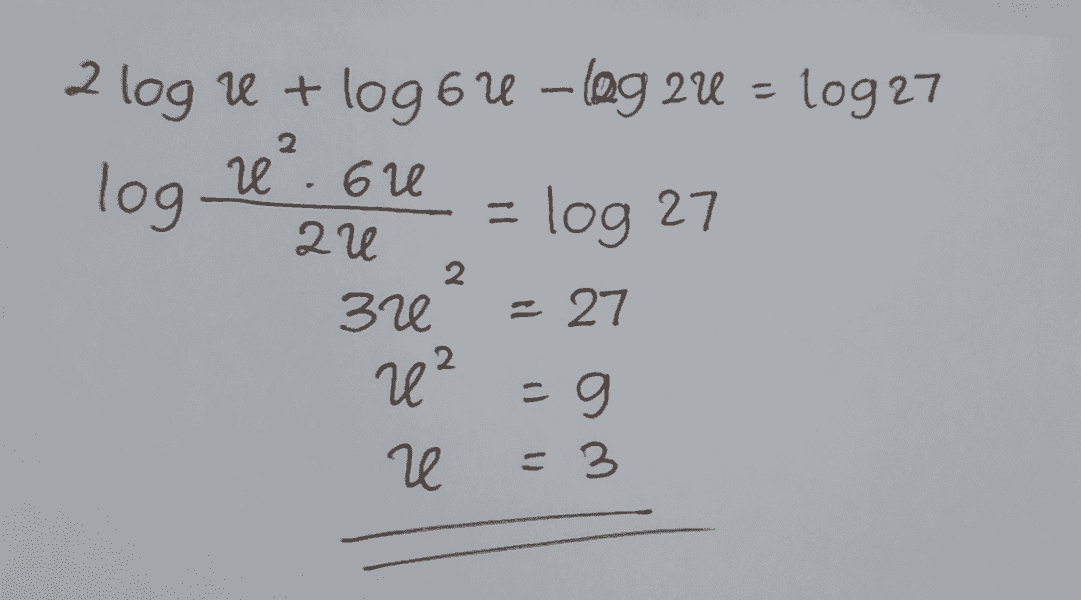 2 log x + log 6x - log 2x = log 27
log x² . 6x / 2x = log 27
3x² = 27
x² = 9
x = 3